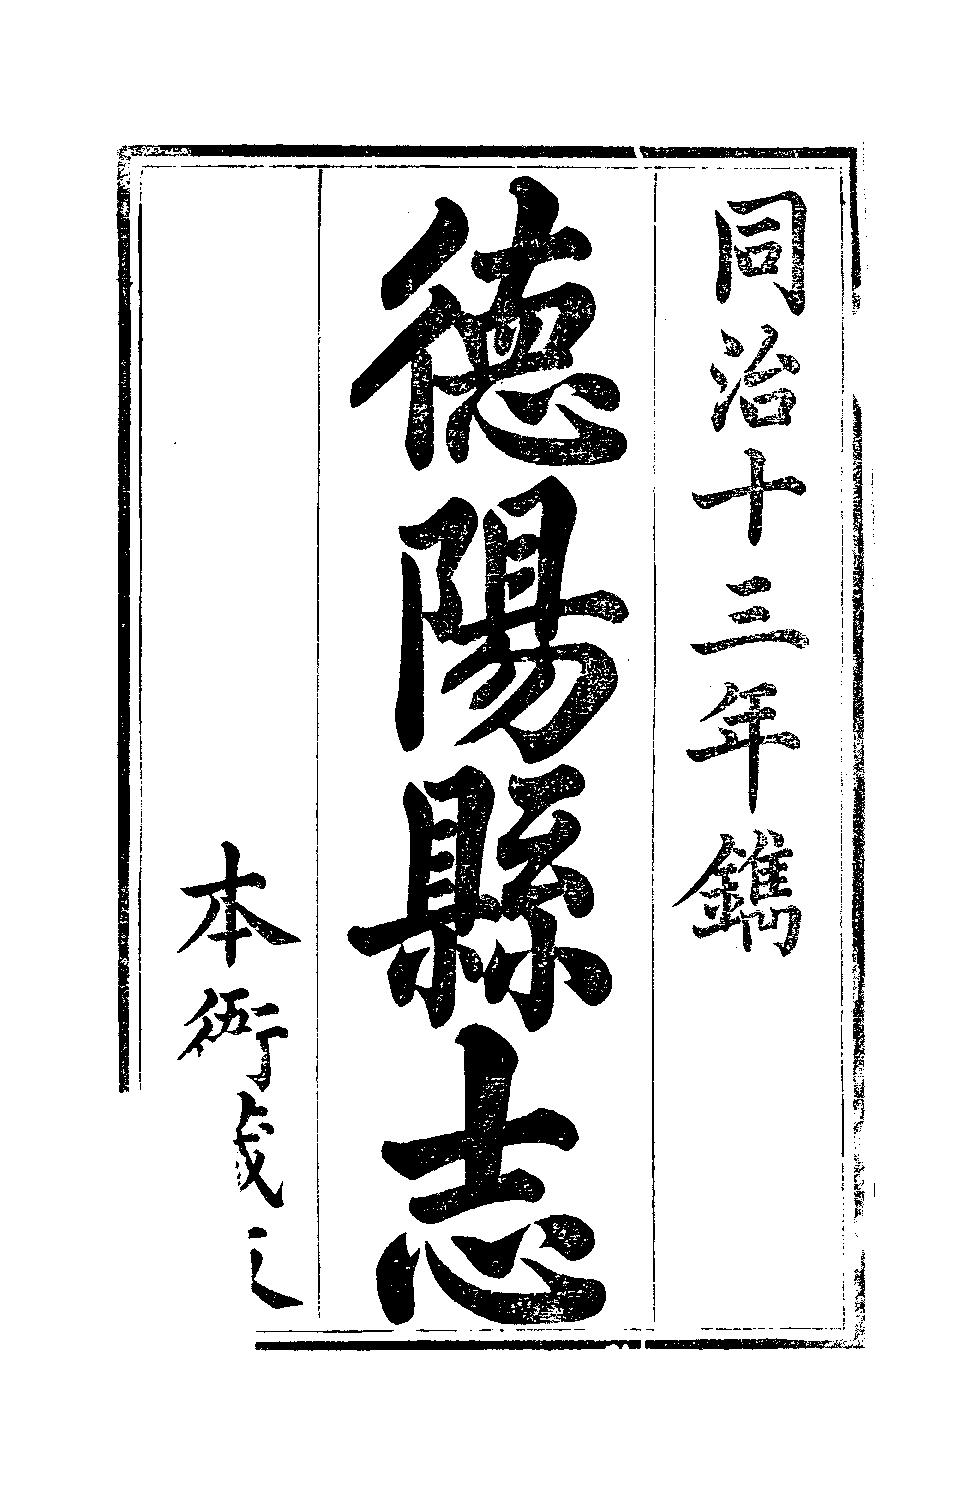 同治十三年鐫
德陽縣志
本衙